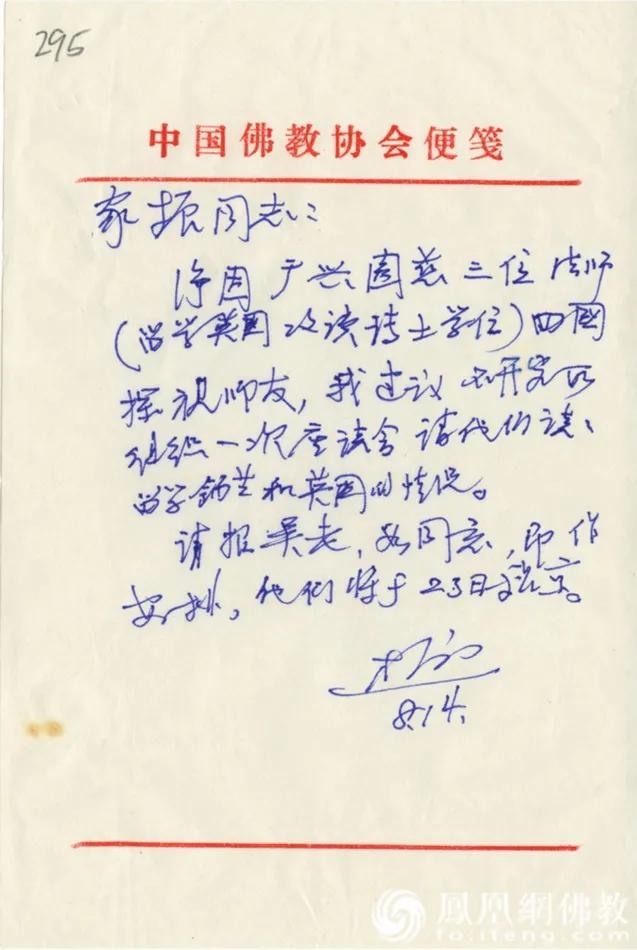 295
中国佛教协会便笺
家振同志：
净因广兴圆慈三位法师
（留学英国攻读博士学位）回国
探视师友，我建议由研究所
组织一次座谈会 请他们谈谈
留学锡兰和英国的情况。
请报吴老，如同意，即作
安排，他们将于23日离京。
8.14.
凤凰網佛教
fo.ifeng.com